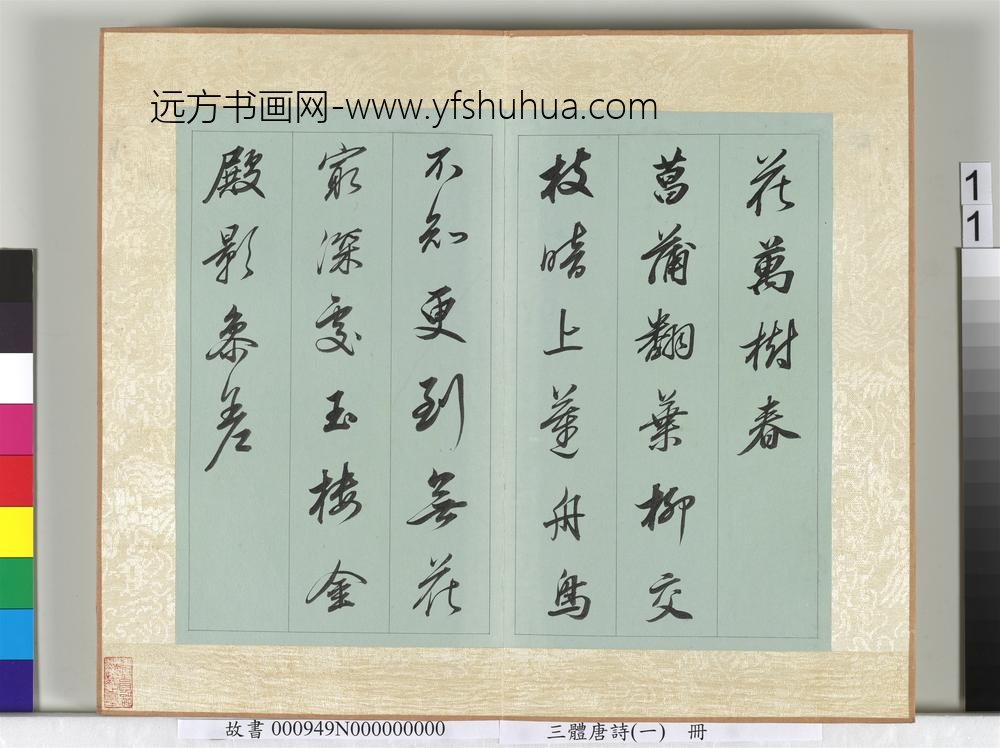 远方书画网-www.yfshuhua.com
花萬樹春
菖蒲翻葉柳交
枝暗上蓮舟鳥
不知更到無花
窮深處玉樓金
殿影參差
1
1
故書 000949N000000000
三體唐詩(一) 冊